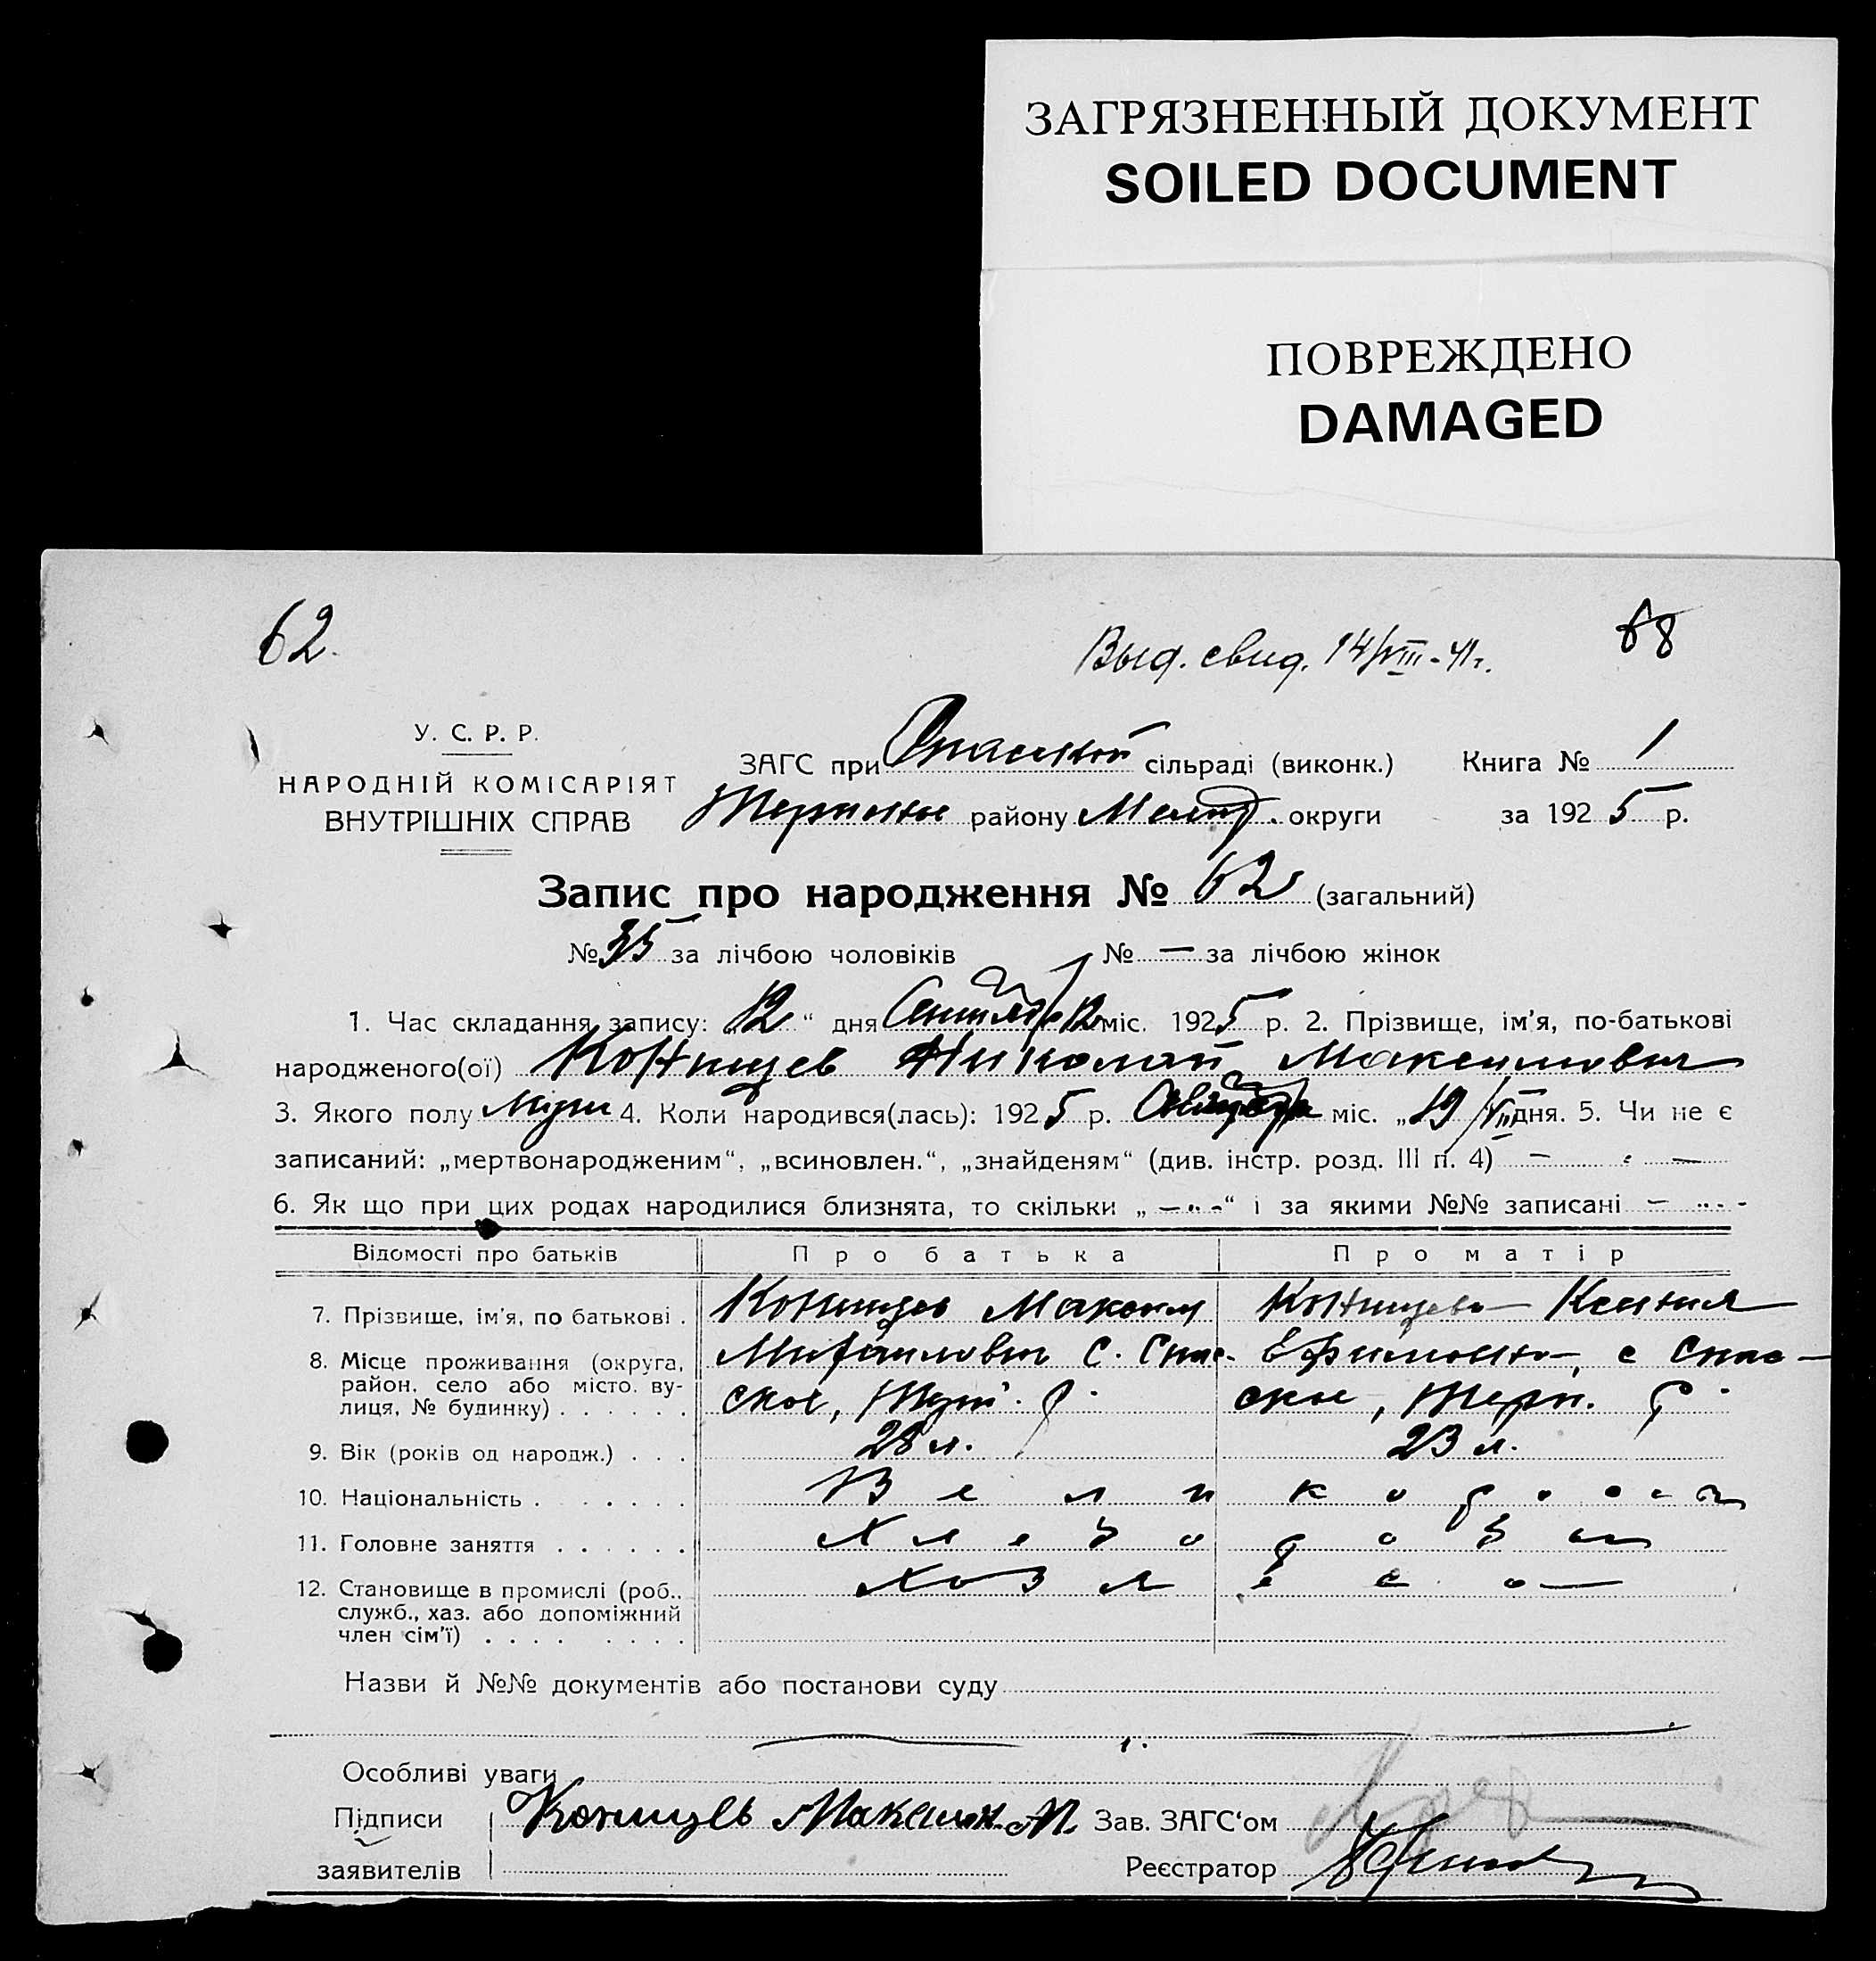 ЗАГРЯЗНЕННЫЙ ДОКУМЕНТ
SOILED DOCUMENT
ПОВРЕЖДЕНО
DAMAGED
62.
Выд. свид. 14/VIII-41г.
68
У. С. Р. Р.
НАРОДНІЙ КОМІСАРІЯТ
ВНУТРІШНІХ СПРАВ
ЗАГС при Спасской сільраді (виконк.) Книга № 1
району Мелит. округи за 1925 р.
Запис про народження № 62 (загальний)
№ 35 за лічбою чоловіків № — за лічбою жінок
1. Час складання запису: 12 “ дня Сентября міс. 1925 р. 2. Прізвище, ім’я, по-батькові
народженого(ої) Контщев Николай Максимович
3. Якого полу Муж 4. Коли народився(лась): 1925 р. міс. „19/VIII дня. 5. Чи не є
записаний: „мертвонародженим“, „всиновлен.“, „знайденям“ (див. інстр. розд. III п. 4) —
6. Як що при цих родах народилися близнята, то скільки „ — “ і за якими №№ записані —
Відомості про батьків Про батька Про матір
7. Прізвище, ім’я, по батькові . Максим Ксения
8. Місце проживання (округа, Михайлович с. Спас- Ефимовна, с Спас-
район, село або місто, ву- ское, ское, Терп. р.
лиця, № будинку) . . . . . .
9. Вік (років од народж.) . . . 28 л. 23 л.
10. Національність . . . . . . . Великоросы
11. Головне заняття . . . . . . Хлебороб
12. Становище в промислі (роб., Хозяева
служб., хаз. або допоміжний
член сім’ї) . . . . . . . .
Назви й №№ документів або постанови суду
Особливі уваги
Підписи Максим. М. Зав. ЗАГС‘ом
заявителів Реєстратор